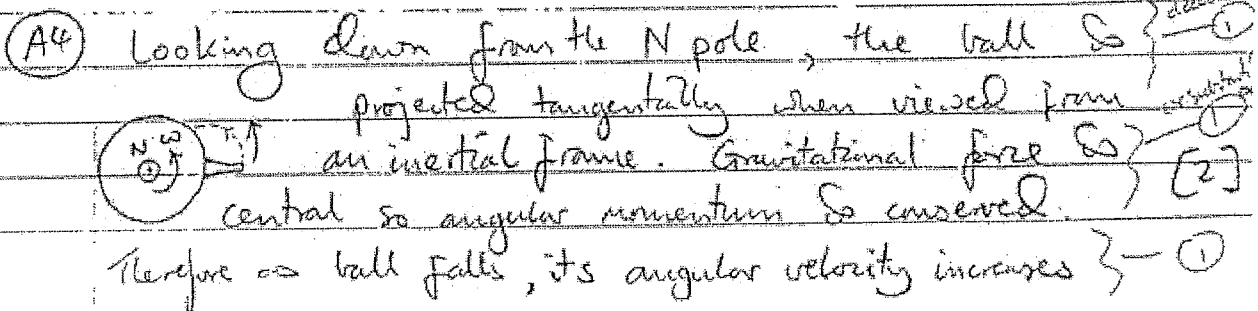 A4 Looking down from the N pole, the ball is } — 1
projected tangentally when viewed from
N ω an inertial frame. Gravitational force is } — 1 [2]
central so angular momentum is conserved.
Therefore as ball falls, its angular velocity increases } — 1